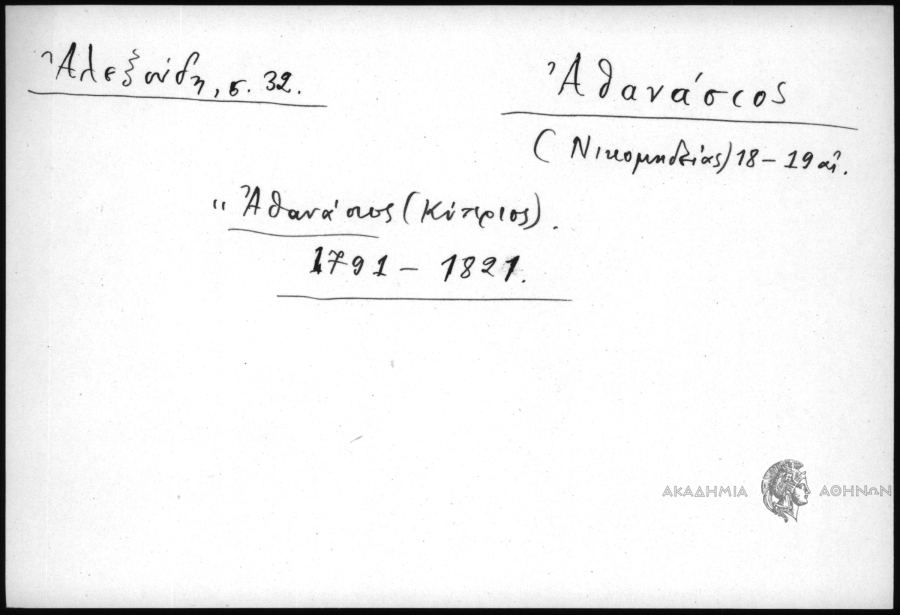 Ἀλεξούδη, σ. 32.
Ἀθανάσιος
(Νικομηδείας) 18 – 19 αἰ.
"Ἀθανάσιος (Κύπριος).
1791 – 1821.
ΑΚΑΔΗΜΙΑ ΑΘΗΝΩΝ